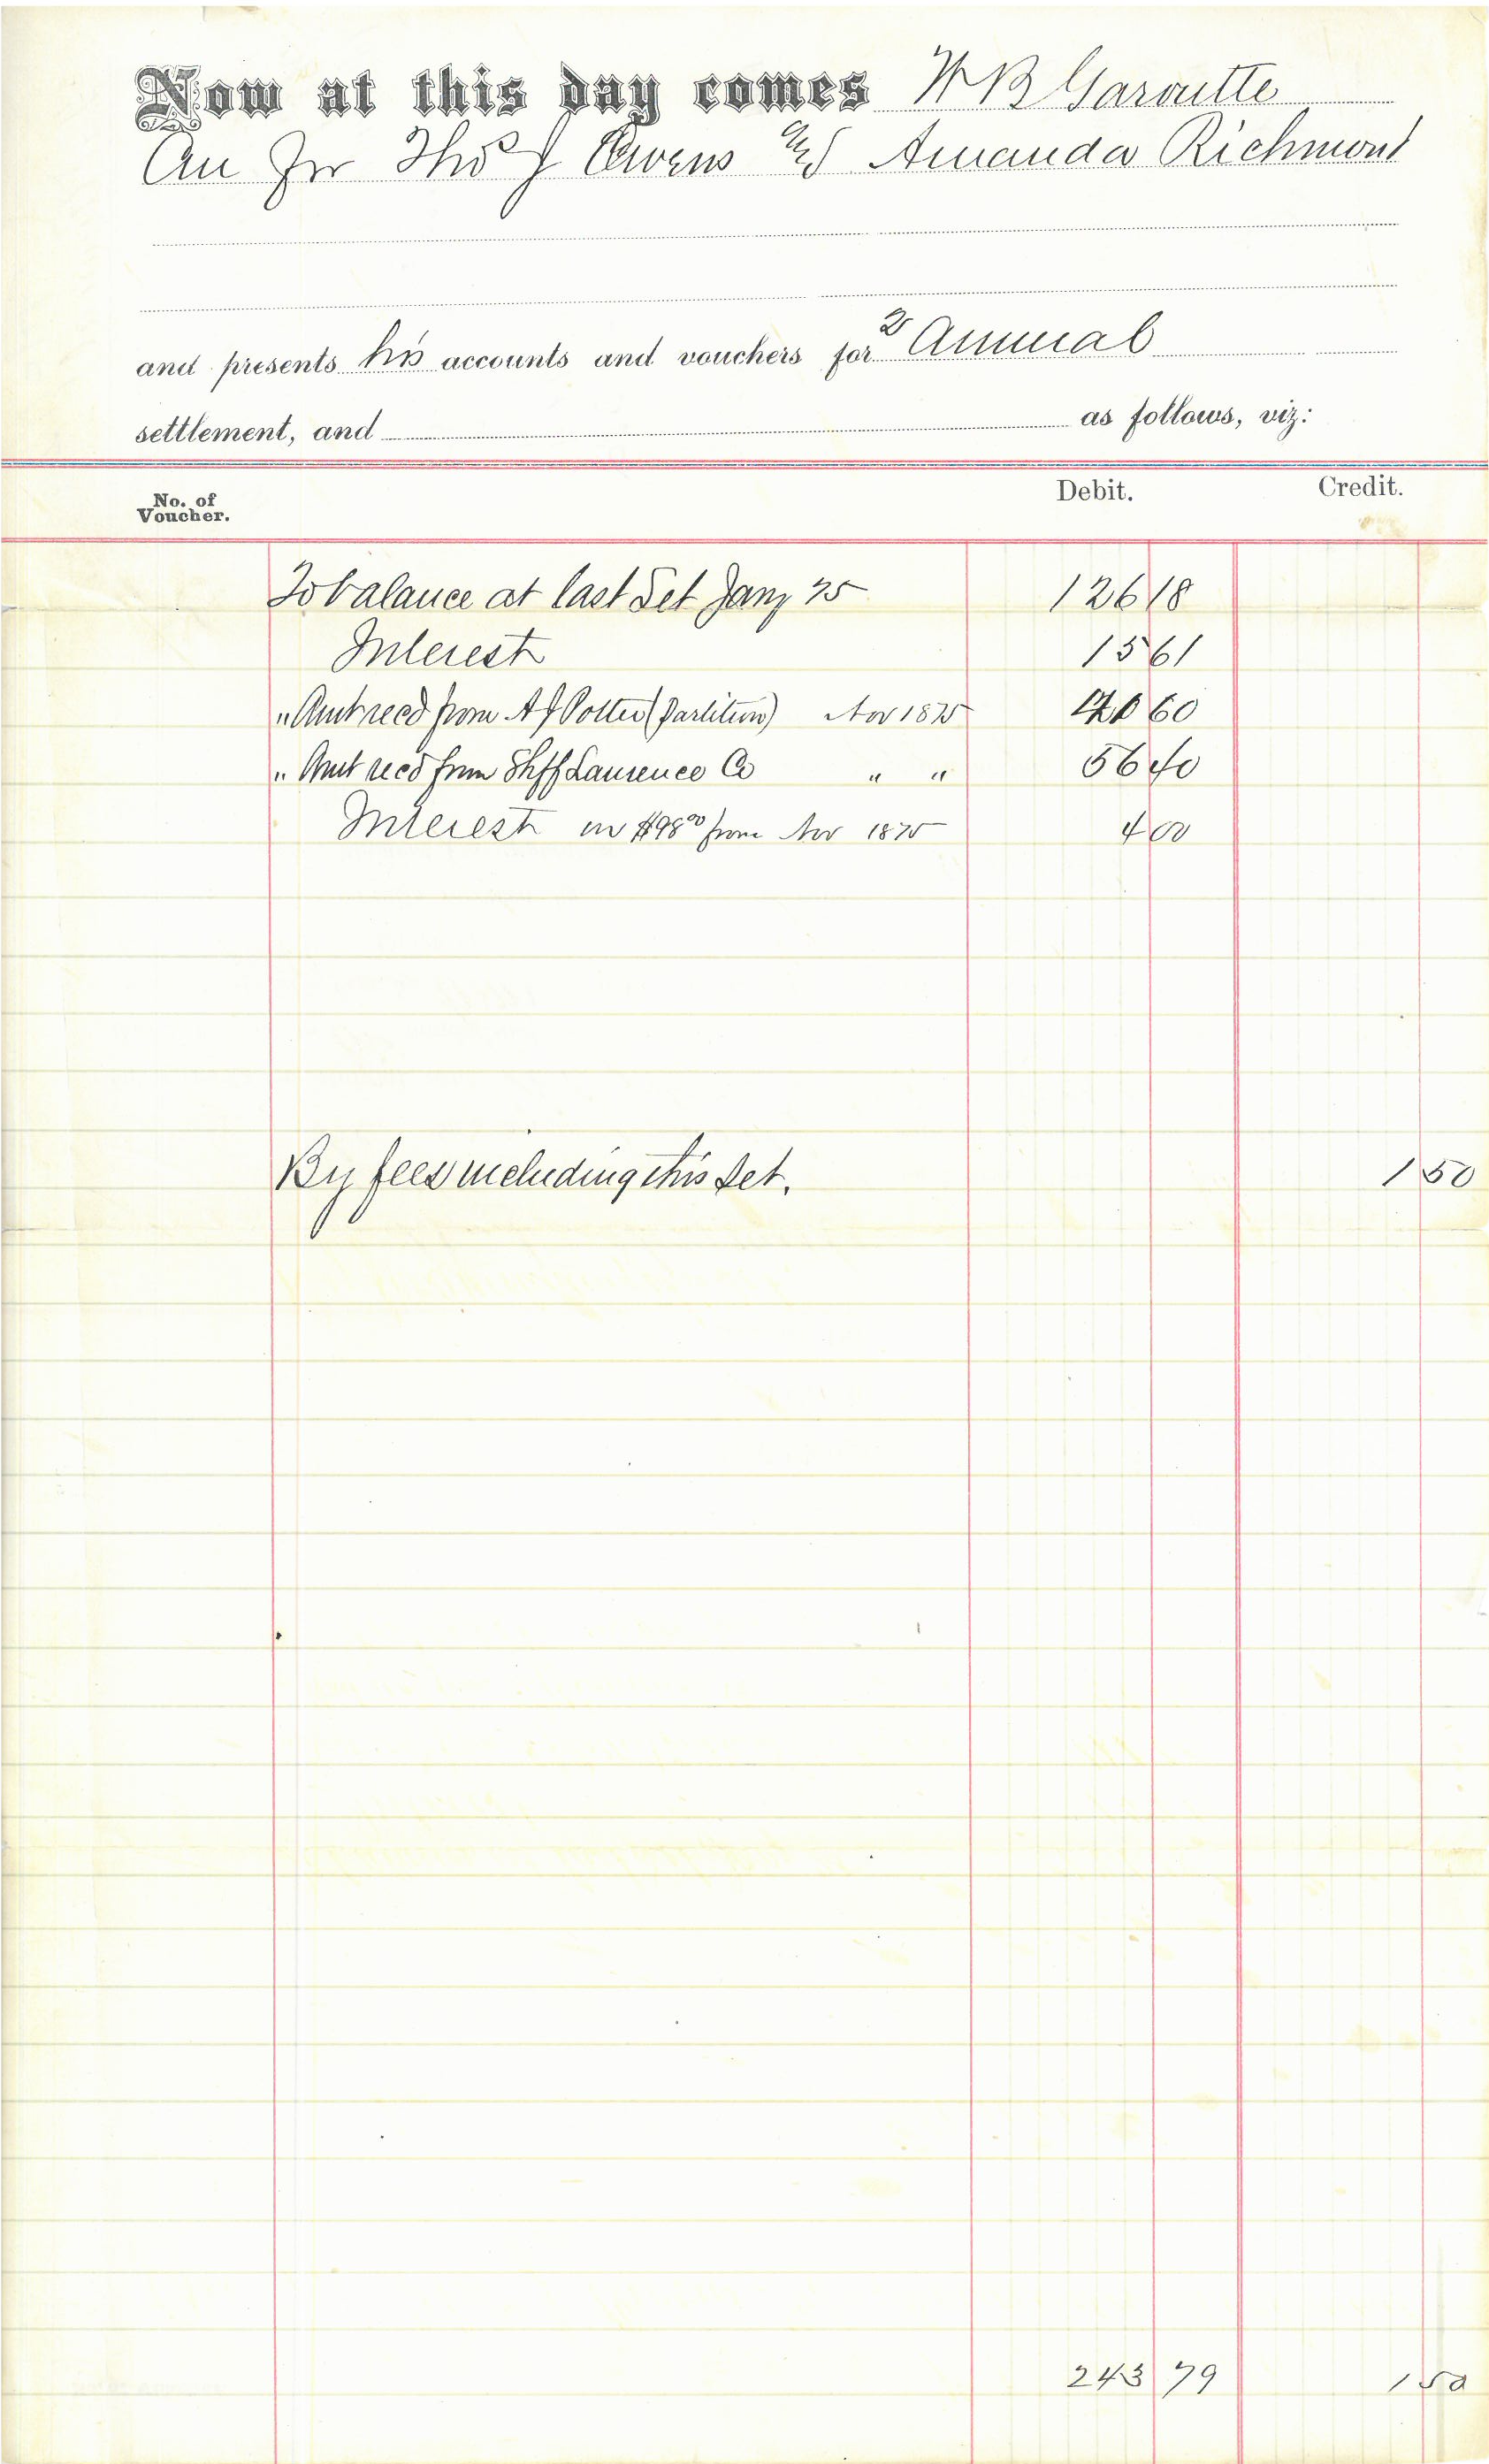 Now at this day comes W B Garoutte
Thos J Owens Gd Amanda Richmond
and presents his accounts and vouchers for 2 Annual
settlement, and as follows, viz:
No. of Voucher. Debit. Credit.
To balance at last Set Jany 75 126 18
Interest 15 61
" Amt recd from A J Potter (Partition) Nov 1875 41 60
" Amt recd from Shff Laurence Co " " 56 40
Interest on $98 00 from Nov 1875 4 00
By fees including this Set. 1 50
243 79 1 50